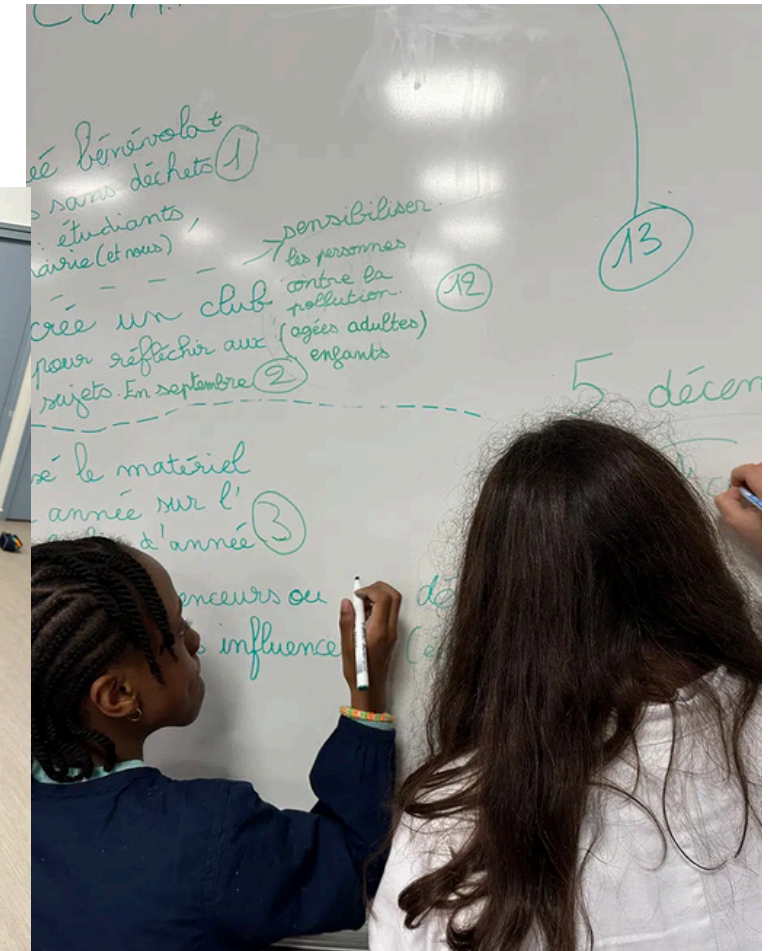 bénévolat
sans déchets 1
étudiants
(et nous)
crée un club
pour réfléchir aux
sujets. En septembre 2
sensibiliser
les personnes
contre la
pollution. 12
(agées adultes)
enfants
13
5 décem
le matériel
année sur l'
d'année 3
enceurs ou dé
influence